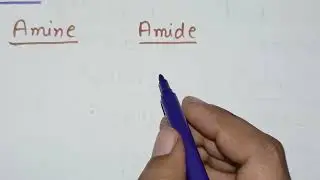 Amine Amide